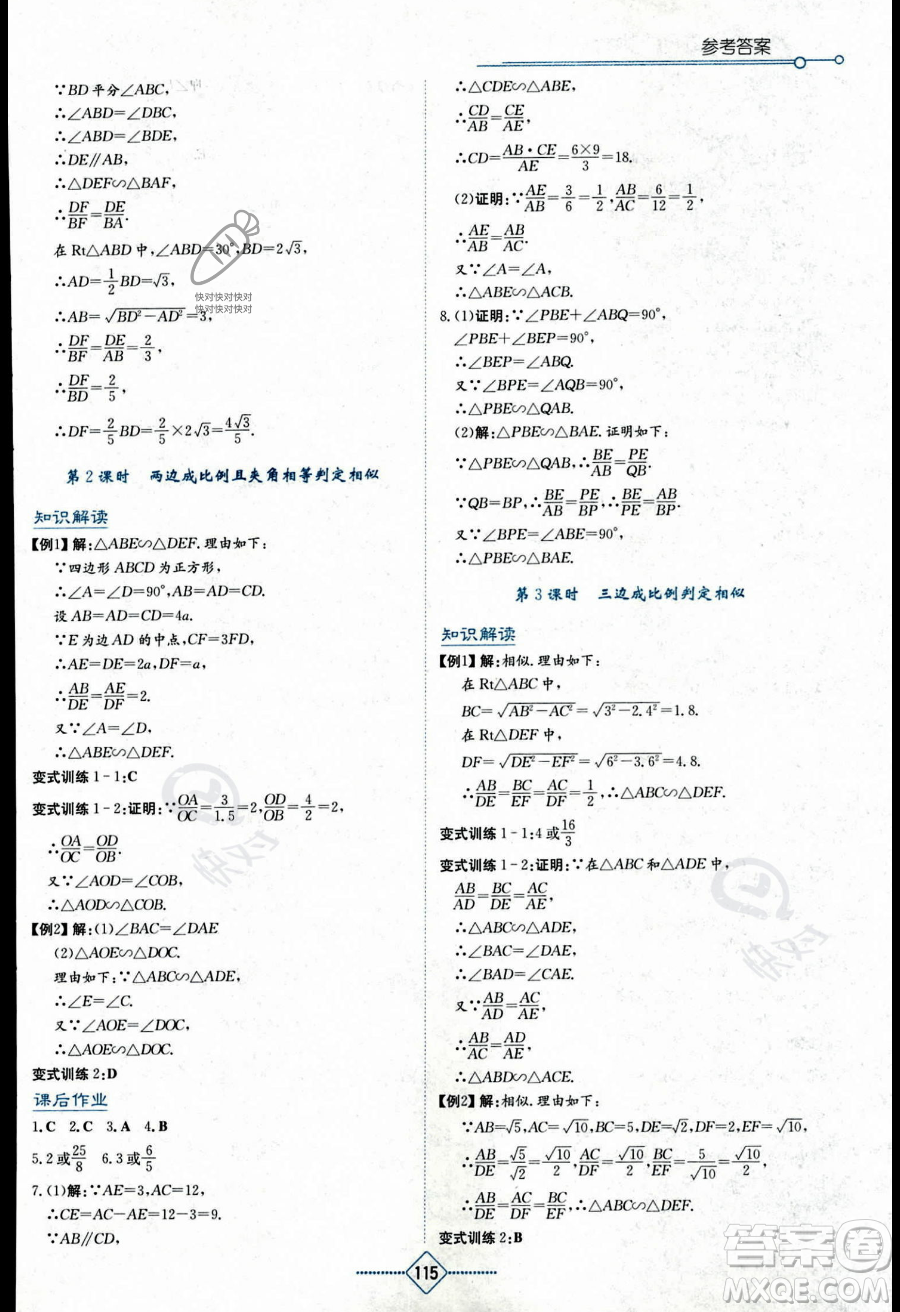 参考答案
∵BD平分∠ABC,
∴∠ABD=∠DBC,
∴∠ABD=∠BDE,
∴DE∥AB,
∴△DEF∽△BAF,
∴DF/BF=DE/BA.
在Rt△ABD中,∠ABD=30°,BD=2√3,
∴AD=1/2BD=√3,
∴AB=√(BD²-AD²)=3,
∴DF/BF=DE/AB=2/3,
∴DF/BD=2/5,
∴DF=2/5BD=2/5×2√3=4√3/5.
第2课时 两边成比例且夹角相等判定相似
知识解读
【例1】解:△ABE∽△DEF.理由如下:
∵四边形ABCD为正方形,
∴∠A=∠D=90°,AB=AD=CD.
设AB=AD=CD=4a.
∵E为边AD的中点,CF=3FD,
∴AE=DE=2a,DF=a,
∴AB/DE=AE/DF=2.
又∵∠A=∠D,
∴△ABE∽△DEF.
变式训练1-1:C
变式训练1-2:证明:∵OA/OC=3/1.5=2,OD/OB=4/2=2,
∴OA/OC=OD/OB.
又∵∠AOD=∠COB,
∴△AOD∽△COB.
【例2】解:(1)∠BAC=∠DAE
(2)△AOE∽△DOC.
理由如下:∵△ABE∽△ACD,
∴∠E=∠C.
又∵∠AOE=∠DOC,
∴△AOE∽△DOC.
变式训练2:D
课后作业
1.C 2.C 3.A 4.B
5.2或25/8 6.3或6/5
7.(1)解:∵AE=3,AC=12,
∴CE=AC-AE=12-3=9.
∵AB∥CD,
∴△CDE∽△ABE,
∴CD/AB=CE/AE,
∴CD=AB·CE/AE=6×9/3=18.
(2)证明:∵AE/AB=3/6=1/2,AB/AC=6/12=1/2,
∴AE/AB=AB/AC.
又∵∠A=∠A,
∴△ABE∽△ACB.
8.(1)证明:∵∠PBE+∠ABQ=90°,
∠PBE+∠BEP=90°,
∴∠BEP=∠ABQ.
又∵∠BPE=∠AQB=90°,
∴△PBE∽△QAB.
(2)解:△PBE∽△BAE.证明如下:
∵△PBE∽△QAB,∴BE/AB=PE/QB.
∵QB=BP,∴BE/AB=PE/BP,∴BE/PE=AB/BP.
又∵∠BPE=∠ABE=90°,
∴△PBE∽△BAE.
第3课时 三边成比例判定相似
知识解读
【例1】解:相似.理由如下:
在Rt△ABC中,
BC=√(AB²-AC²)=√(3²-2.4²)=1.8.
在Rt△DEF中,
DF=√(DE²-EF²)=√(6²-3.6²)=4.8.
∴AB/DE=BC/EF=AC/DF=1/2,∴△ABC∽△DEF.
变式训练1-1:4或16/3
变式训练1-2:证明:∵在△ABC和△ADE中,
AB/AD=BC/DE=AC/AE,
∴△ABC∽△ADE,
∴∠BAC=∠DAE,
∴∠BAD=∠CAE.
又∵AB/AD=AC/AE,
∴AB/AC=AD/AE,
∴△ABD∽△ACE.
【例2】解:相似.理由如下:
∵AB=√5,AC=√10,BC=5,DE=2,DF=√2,EF=√10,
∴AB/DF=√5/√2=√10/2,AC/DE=√10/2,BC/EF=5/√10=√10/2,
∴AB/DF=AC/DE=BC/EF,∴△ABC∽△DFE.
变式训练2:B
115
快对快对快对
快对快对快对
快对
快对
答案圈
MXQE.COM